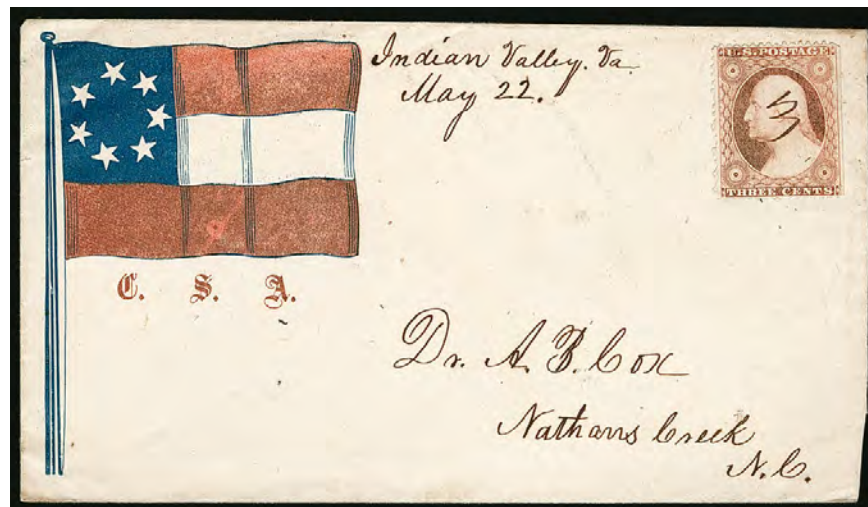 Indian Valley. Va.
May 22.
U.S. POSTAGE
3
THREE CENTS
C. S. A.
Dr. A. B. Cox
Nathans Creek
N.C.